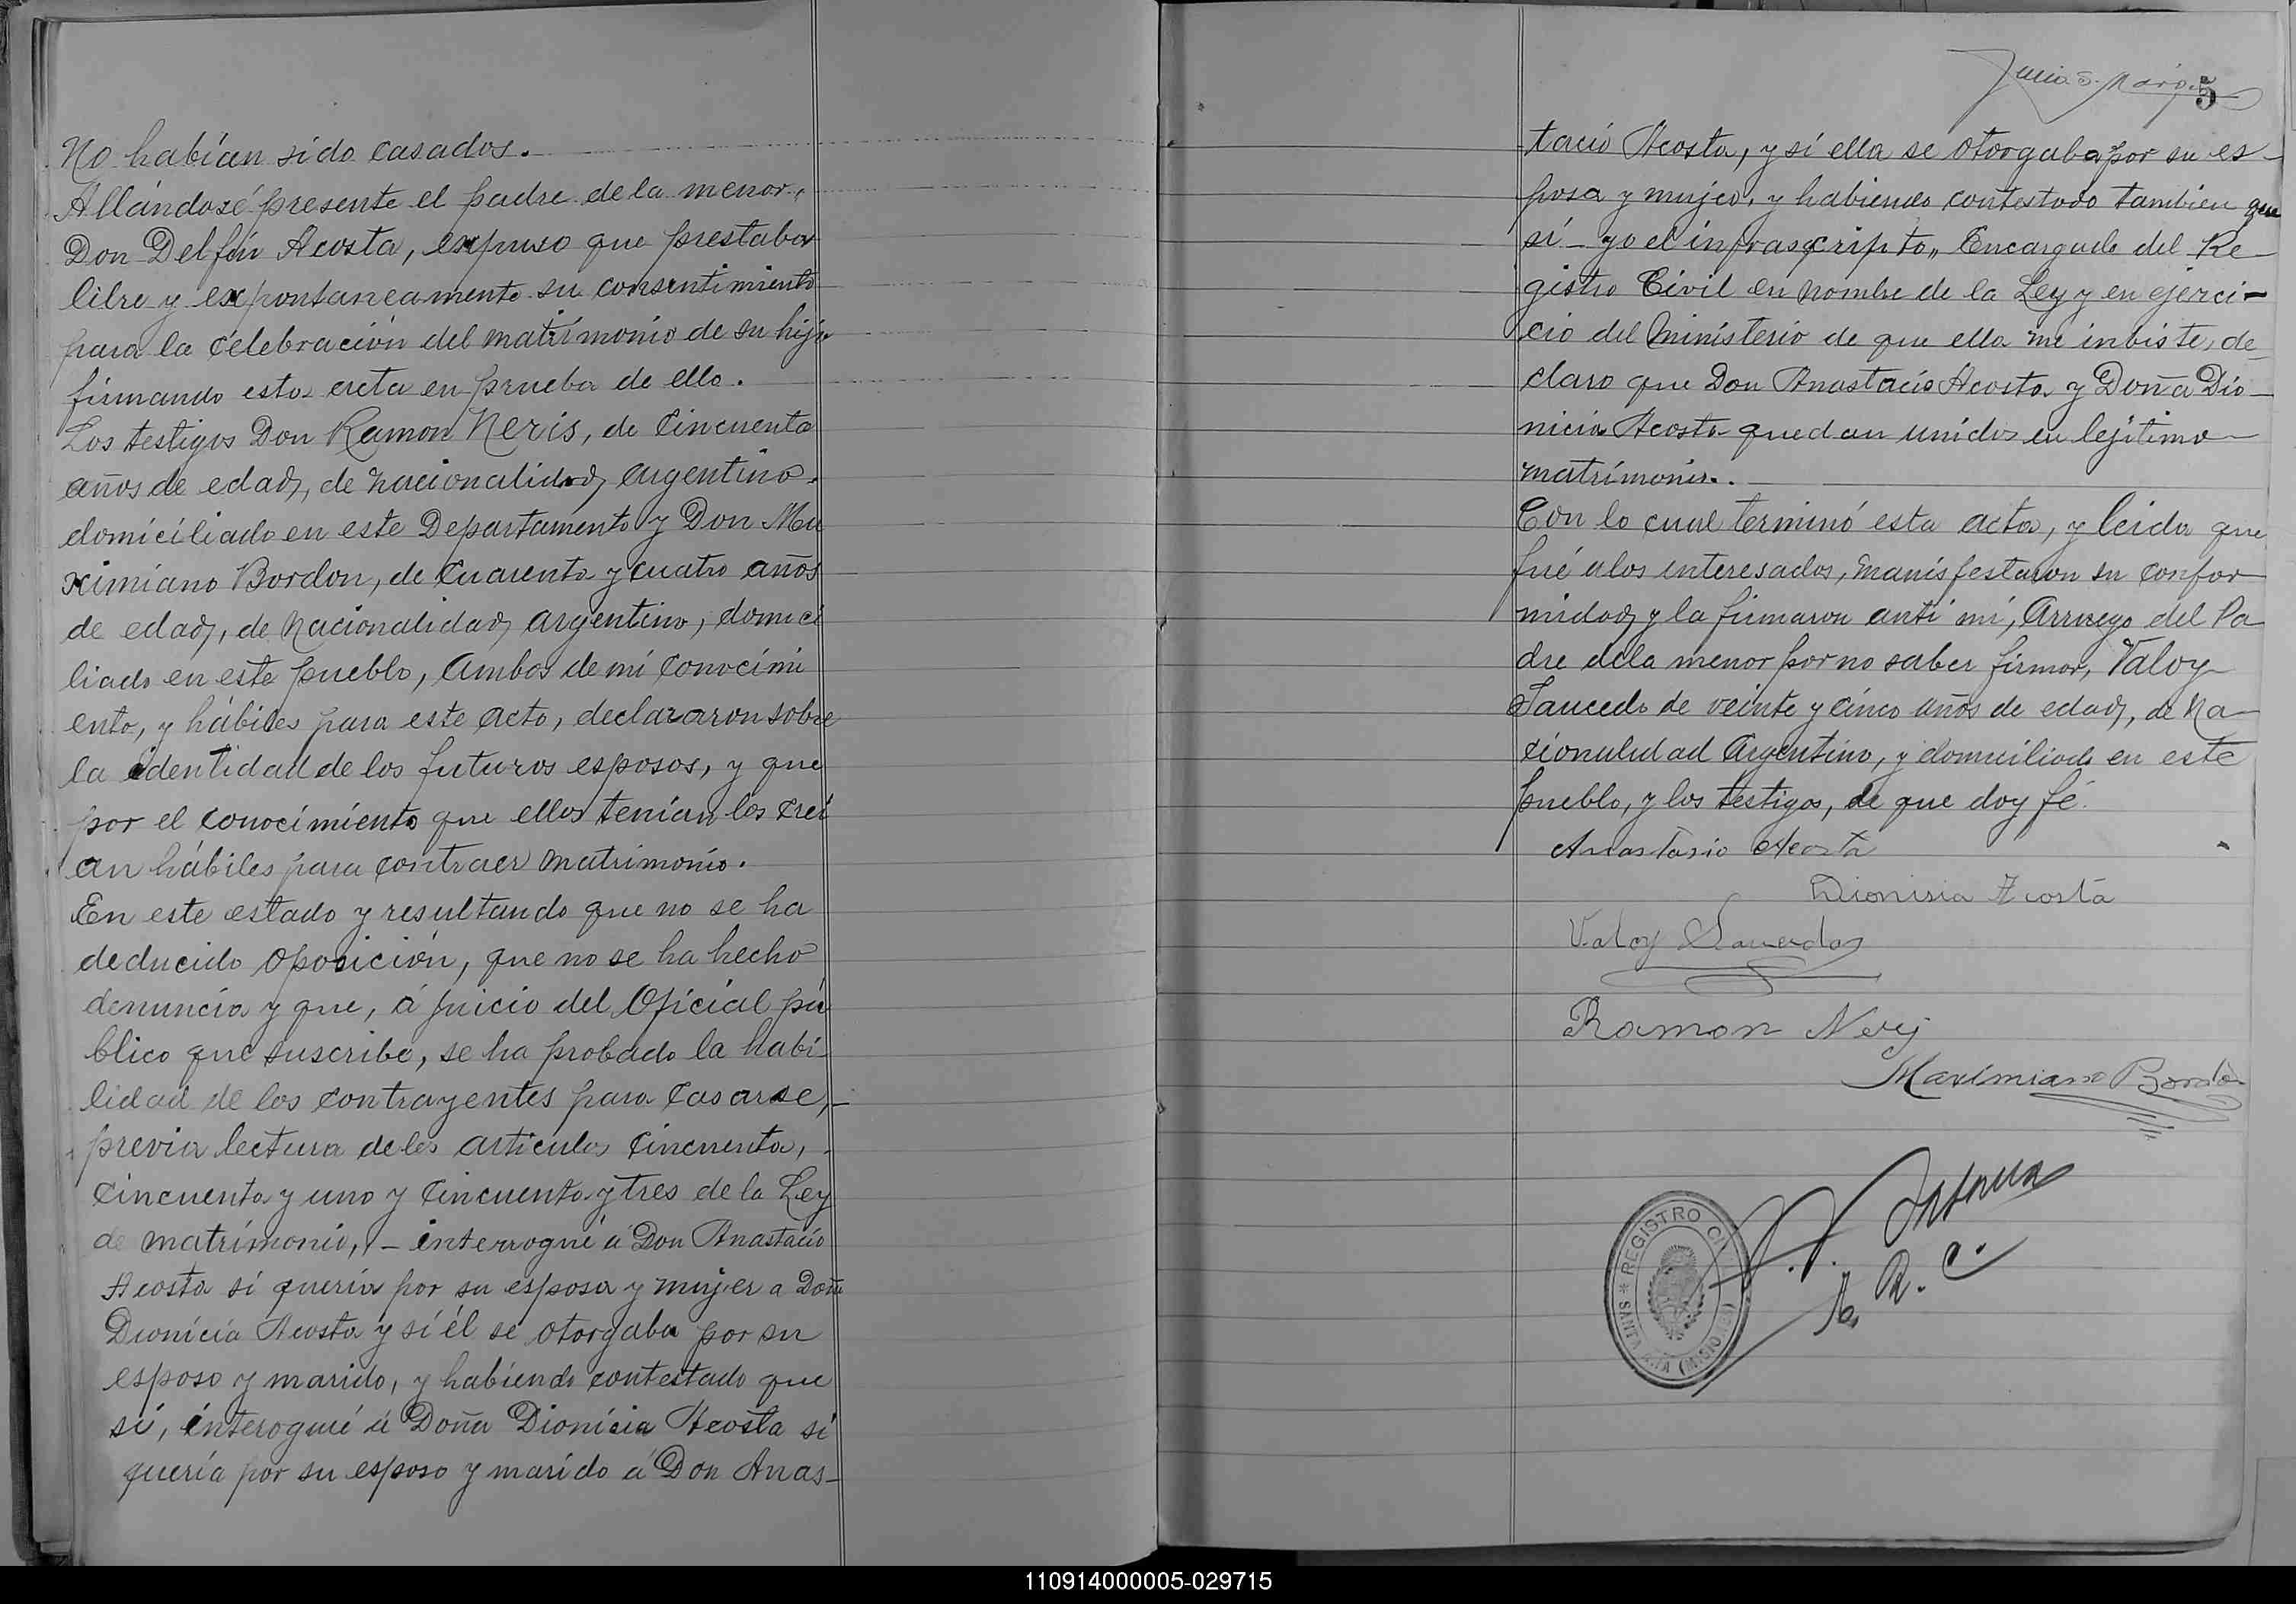 No habían sido casados.
Allándosé presente el padre de la menor,
Don Delfín Acosta, expuso que prestaba
libre y expontaneamente su consentimiento
para la célebración del matrimonio de su hija
firmando esta acta en prueba de ello.
Los testigos Don Ramon Neris, de Cincuenta
años de edad, de nacionalidad argentino,
domiciliado en este Departamento y Don Ma
ximiano Bordon, de Cuarenta y cuatro años
de edad, de Nacionalidad argentino, domici
liado en este pueblo, ambos de mi Conocimi
ento, y hábiles para este acto, declararon sobre
la identidad de los futuros esposos, y que
por el conocimiento que ellos tenían los creí
an hábiles para contraer matrimonio.
En este estado y resultando que no se ha
deducido oposición, que no se ha hecho
denuncia y que, á juicio del Oficial pú
blico que suscribe, se ha probado la habi
lidad de los contrayentes para Casarse,
previa lectura de los articulos Cincuenta,
Cincuenta y uno y Cincuenta y tres de la Ley
de matrimonio, – interrogué á Don Anastacio
Acosta si quería por su esposa y mujer a Doña
Dionicia Acosta y sí él se otorgaba por su
esposo y marido, y habiendo contestado que
sí, interogué á Doña Dionicia Acosta si
quería por su esposo y marido á Don Anas-
5
tacio Acosta, y sí ella se otorgaba por su es-
posa y mujer, y habiendo contestado tambien que
sí – yo el infrascripto, Encargado del Re
gistro Civil en nombre de la Ley y en ejerci-
cio del Ministerio de que ella me inbiste, de
claro que Don Anastacio Acosta y Doña Dio-
nicia Acosta quedan unidos en lejítimo
matrímonio.
Con lo cual terminó esta acta, y leida que
fué a los interesados, manisfestaron su confor
midad, y la firmaron anti mí, Arruego del Pa
dre de la menor por no saber firmar, Valoy
Saucedo de veinte y cinco años de edad, de Na
cionalidad Argentino, y domiciliado en este
pueblo, y los testigos, de que doy fé.
Anastasio Acosta
Dionisia Acosta
Valoy Saucedo
Ramon Neris
Maximiano Bordon
REGISTRO CIVIL
SANTA ANA (MISIONES)
E. R. C.
110914000005-029715